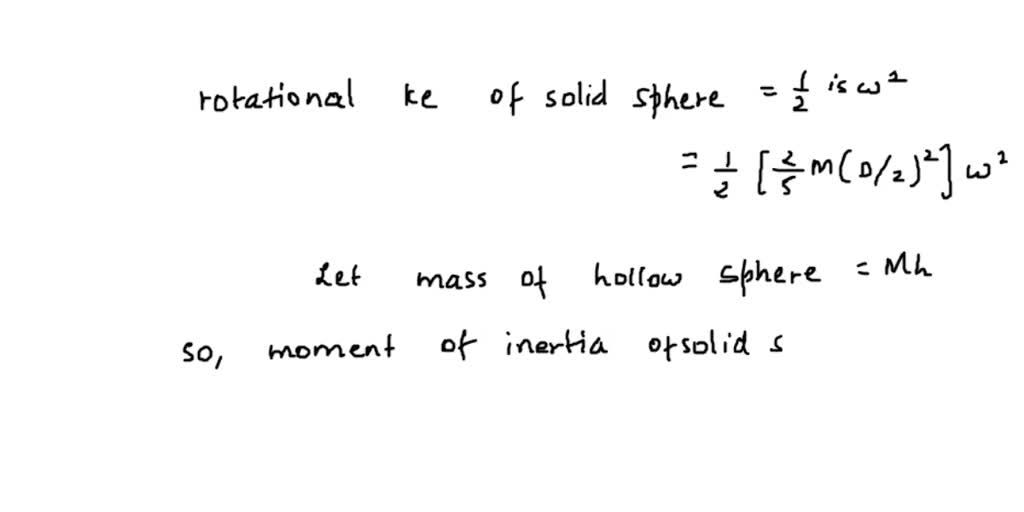 rotational ke of solid sphere = 1/2 is ω²
= 1/2 [2/5 M(D/2)²] ω²
Let mass of hollow sphere = Mh
so, moment of inertia ofsolid s